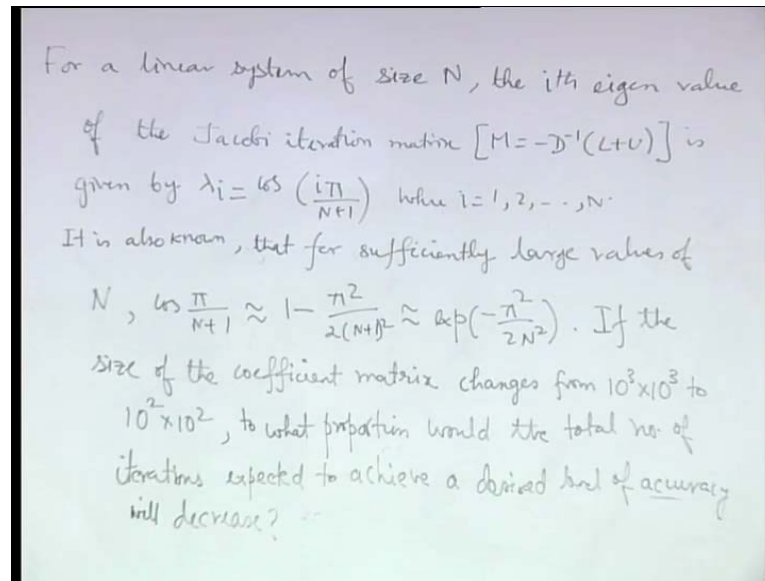 For a linear system of size N, the ith eigen value
of the Jacobi iteration matrix [M = -D⁻¹(L+U)] is
given by λi = cos (iπ/N+1) where i = 1, 2, - - ·, N.
It is also known, that for sufficiently large values of
N, cos π/N+1 ≈ 1 - π²/2(N+1)² ≈ exp(-π²/2N²). If the
size of the coefficient matrix changes from 10³x10³ to
10²x10², to what proportion would the total no. of
iterations expected to achieve a desired level of accuracy
will decrease?